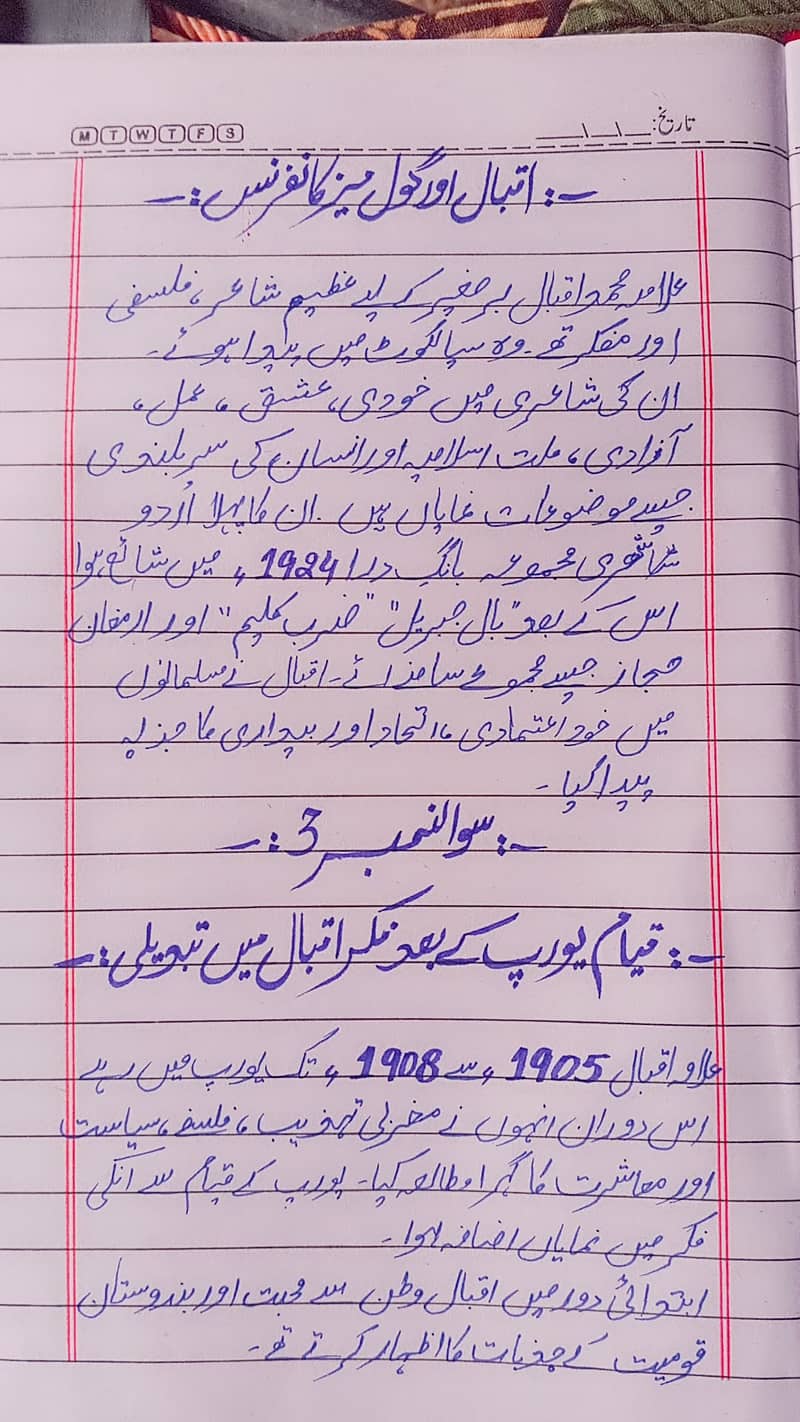 M T W T F S تاریخ: __ \ __ \ __
-: اقبال اور گول میز کانفرنس :-
علامہ محمد اقبال برصغیر کے لیے عظیم شاعر، فلسفی
اور مفکر تھے۔ وہ سیالکوٹ میں پیدا ہوئے۔
ان کی شاعری میں خودی، عشق، عمل،
آزادی، ملت اسلامیہ اور انسان کی سربلندی
جیسے موضوعات نمایاں ہیں۔ ان کا پہلا اُردو
شعری مجموعہ بانگِ درا 1924ء میں شائع ہوا
اس کے بعد "بال جبریل" "ضرب کلیم" اور ارمغان
حجاز جیسے مجموعے سامنے آئے۔ اقبال نے مسلمانوں
میں خود اعتمادی، اتحاد اور بیداری کا جذبہ
پیدا کیا۔
-: سوال نمبر 3 :-
-: قیام یورپ کے بعد فکر اقبال میں تبدیلی :-
علامہ اقبال 1905ء سے 1908ء تک یورپ میں رہے
اس دوران انہوں نے مغربی تہذیب، فلسفے، سیاست
اور معاشرت کا گہرا مطالعہ کیا۔ یورپ کے قیام سے انکی
فکر میں نمایاں اضافہ ہوا۔
ابتدائی دور میں اقبال وطن سے محبت اور ہندوستان
قومیت کے جذبات کا اظہار کرتے تھے۔